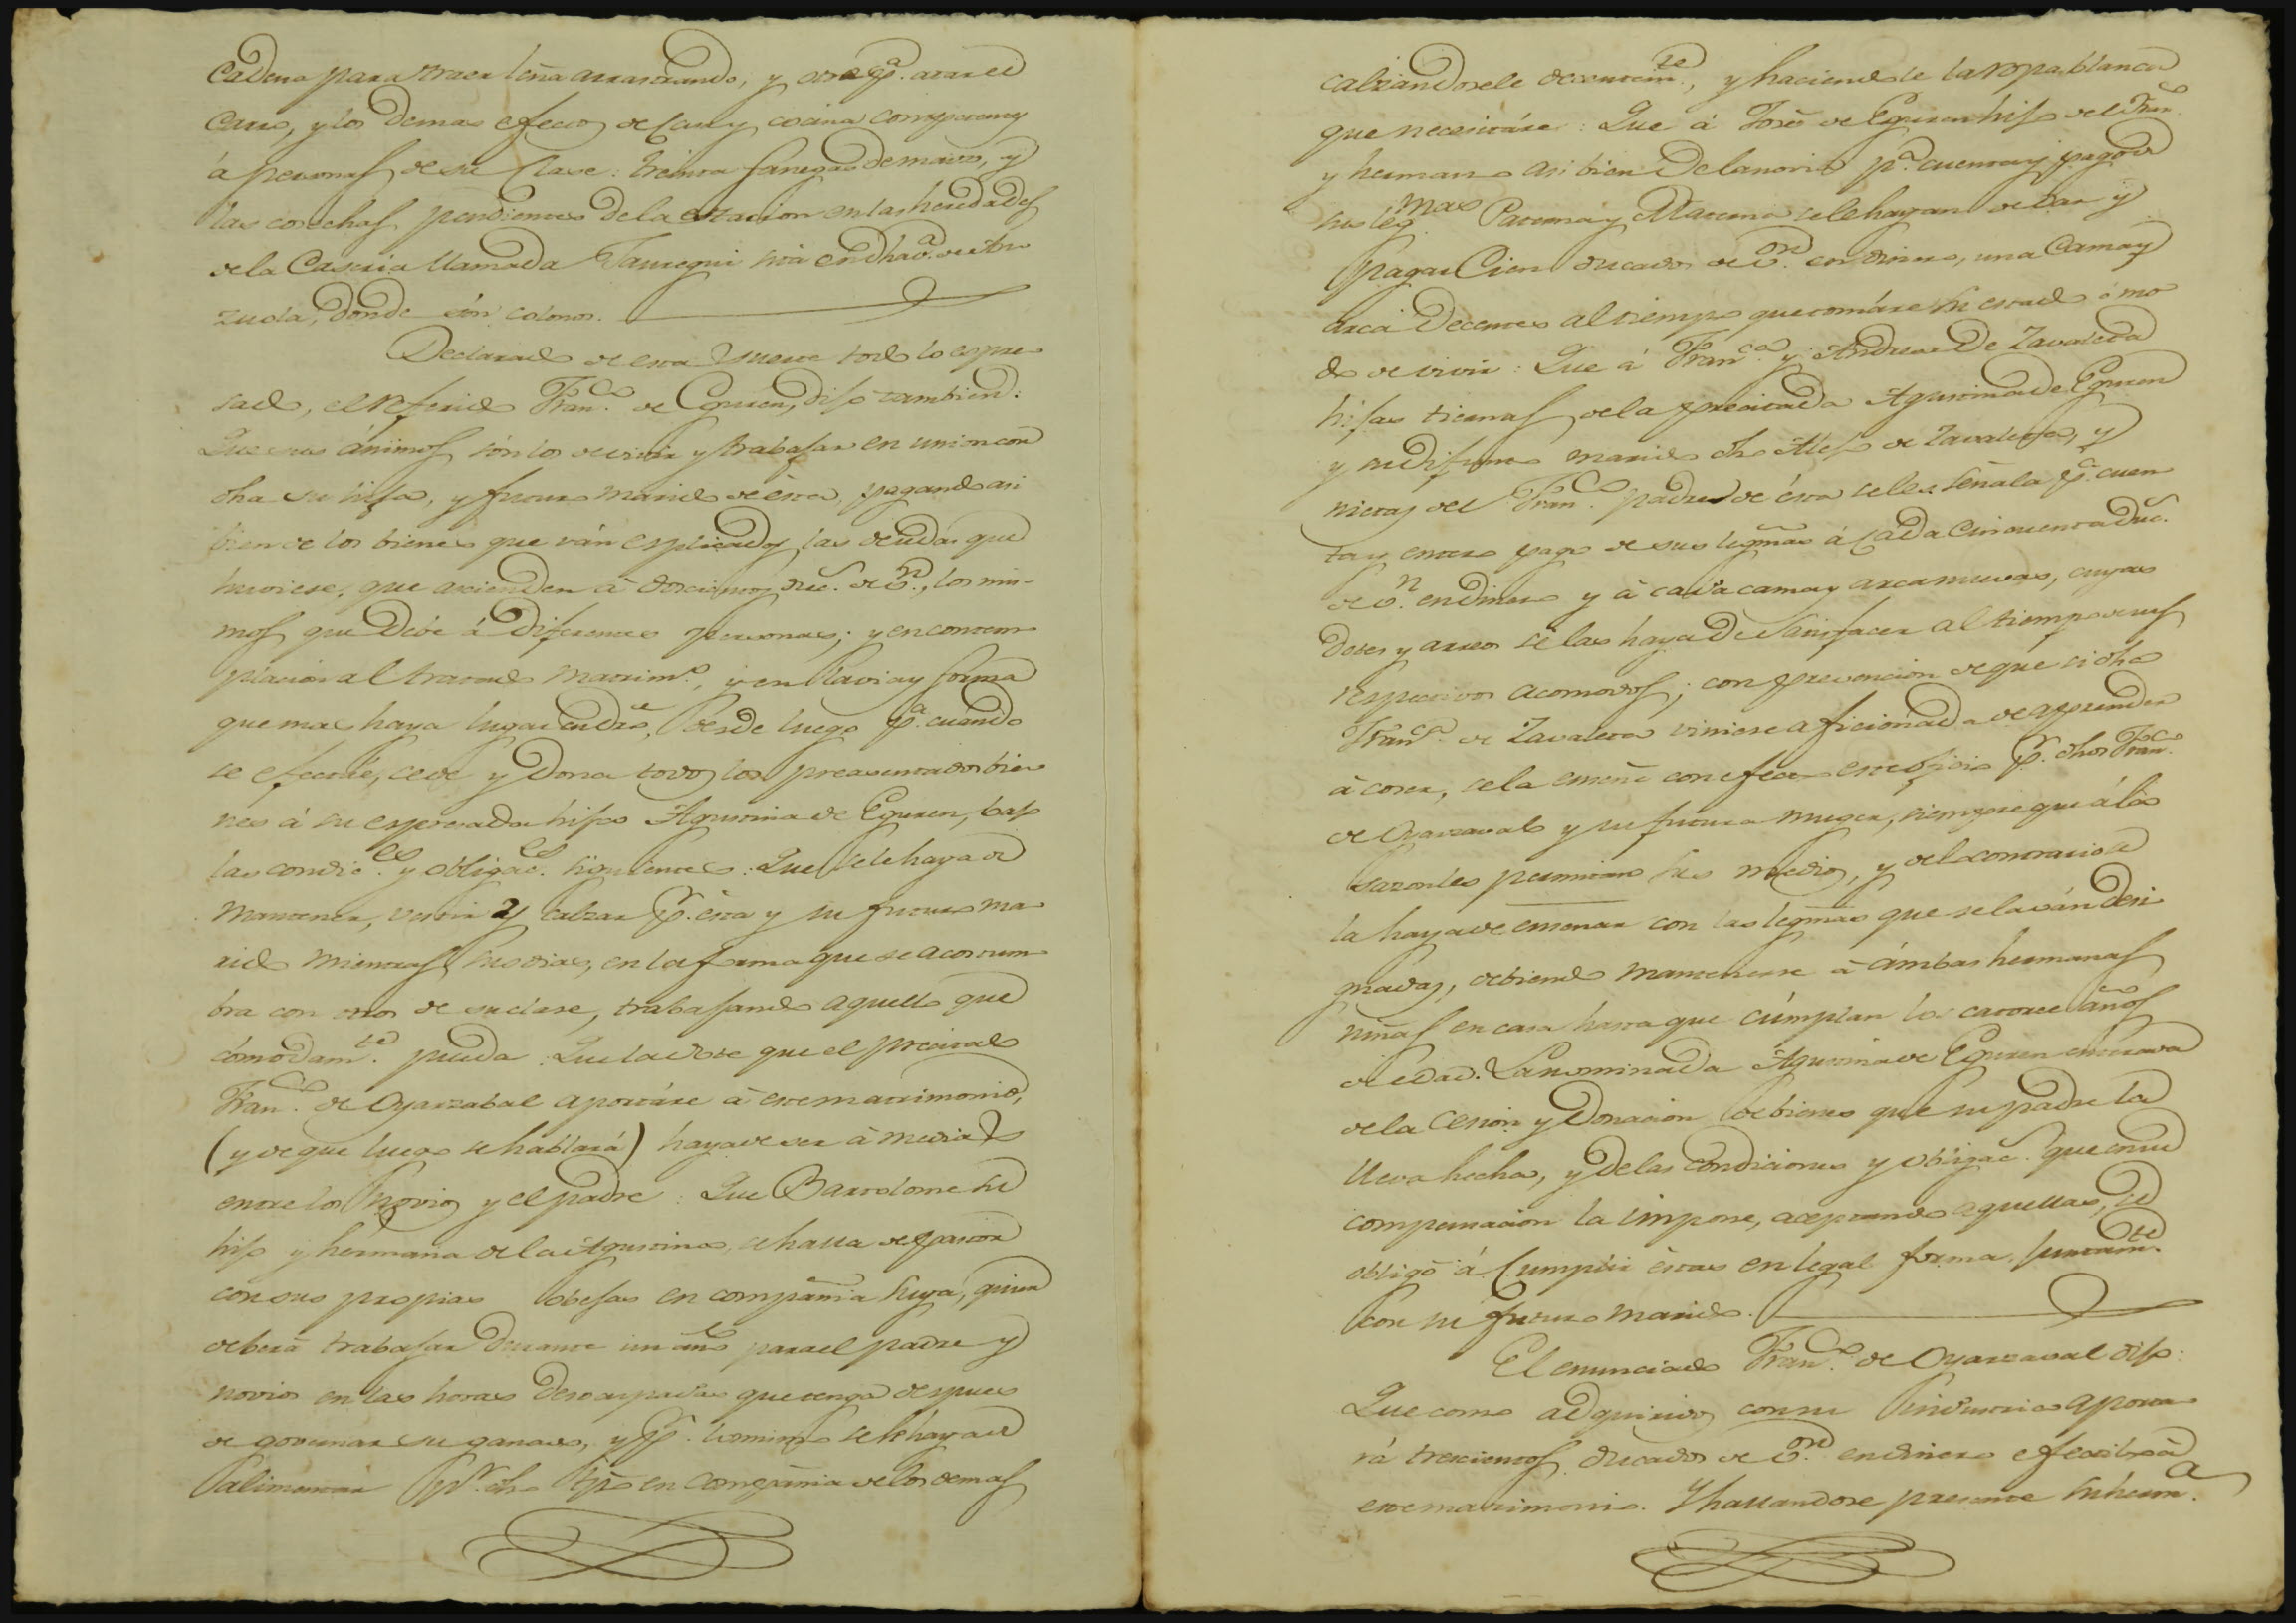 Cadena para traer leña arrastrando, y otra pª. atar el
Carro, y los demas efectos de Casa y cocina correspondtes
á personas de su Clase: treinta fanegas de maiz, y
las cosechas pendientes de la estacion en las heredades
de la Caseria llamada Jauregui sita en dha vª. de An-
zuola, donde són colonos.
Declarado de esta suerte todo lo espre-
sado, el referido Franco. de Eguren, dijo tambien:
Que sus ánimos són los de vivir y trabajar en union con
dha su hija, y futuro marido de ésta, pagando asi
bien de los bienes que ván esplicados las deudas que
huviese, que ascienden à doscientos duc.s de vn., los mis-
mos que Debe á Diferentes personas; y en contem-
placion al tratado Matrimo., y en la via y forma
que mas haya lugar en dro, desde luego pª. cuando
se efectúe, cede y Dona todos los preasentados bie-
nes á su espresada hija Agustina de Eguren, bajo
las condices. y obligaces. siguientes: Que se le haya de
Mantener, vestir y calzar pr. ésta y su futuro ma-
rido mientras sus dias, en la forma que se acostum-
bra con otros de su clase, trabajando aquello que
cómodamte. pueda: Que la dote que el precitado
Franco. de Oyarzabal aportáre à este matrimonio,
(y de que luego se hablará) haya de ser à medias
entre los novios y el padre: Que Bartolome su
hijo y hermano de la Agustina, se halla de pastor
con sus propias obejas en compañia suya, quien
deberá trabajar Durante un año para el padre y
novios en las horas desocupadas que tenga despues
de governar su ganado, y pr. lo mismo se le haya de
alimentar pr. dho tpo en Compañia de los demas
calzandosele decentemte., y haciendole la ropa blanca
que necesitáre: Que á José de Eguren hijo del Franco.
y hermano asi bien De la novia pª. cuenta y pago de
sus legmas Paterna y Materna se le hayan de dar y
pagar Cien ducados de von. en dinero, una Cama y
arca Decentes al tiempo que tomáre su estado ó mo-
do de vivir: Que á Franca. y Andrea De Zavaleta
hijas tiernas de la precitada Agustina de Eguren
y su difunto marido dho Alejo de Zavaleta, y
nietas del Franco. padre de ésta se les señala pª. cuen-
ta y entero pago de sus legmas á Cada Cincuenta duc.s
de vn. en dinero y à cada cama y arca nuevas, cuyas
Dotes y arreos se las haya De Satisfacer al tiempo de sus
respectivos acomodos; con prevencion de que si dha
Franca. de Zavaleta viniese aficionada de aprender
à coser, se la enseñe con efecto este oficio pr. dhos Franco.
de Oyarzaval y su futura muger, siempre que á la
sazon les permitan sus medios, y de lo contrario se
la haya de enseñar con las legmas que se la ván Desi-
gnadas, debiendo mantenerse à ámbas hermanas
niñas en casa hasta que cúmplan los catorce años
de edad. La nominada Agustina de Eguren enterada
de la cesion y Donacion de bienes que su padre la
lleva hecha, y de las condiciones y obligac.s que en su
compensacion la impone, aceptando aquellas, se
obligó á Cumplir éstas en legal forma, juntamte.
con su futuro marido.
El enunciado Franco. de Oyarzaval dijo:
Que como adquiridos con su industria aporta-
rá trescientos ducados de von. en dinero efectibo à
este matrimonio. Y hallandose presente su herma.